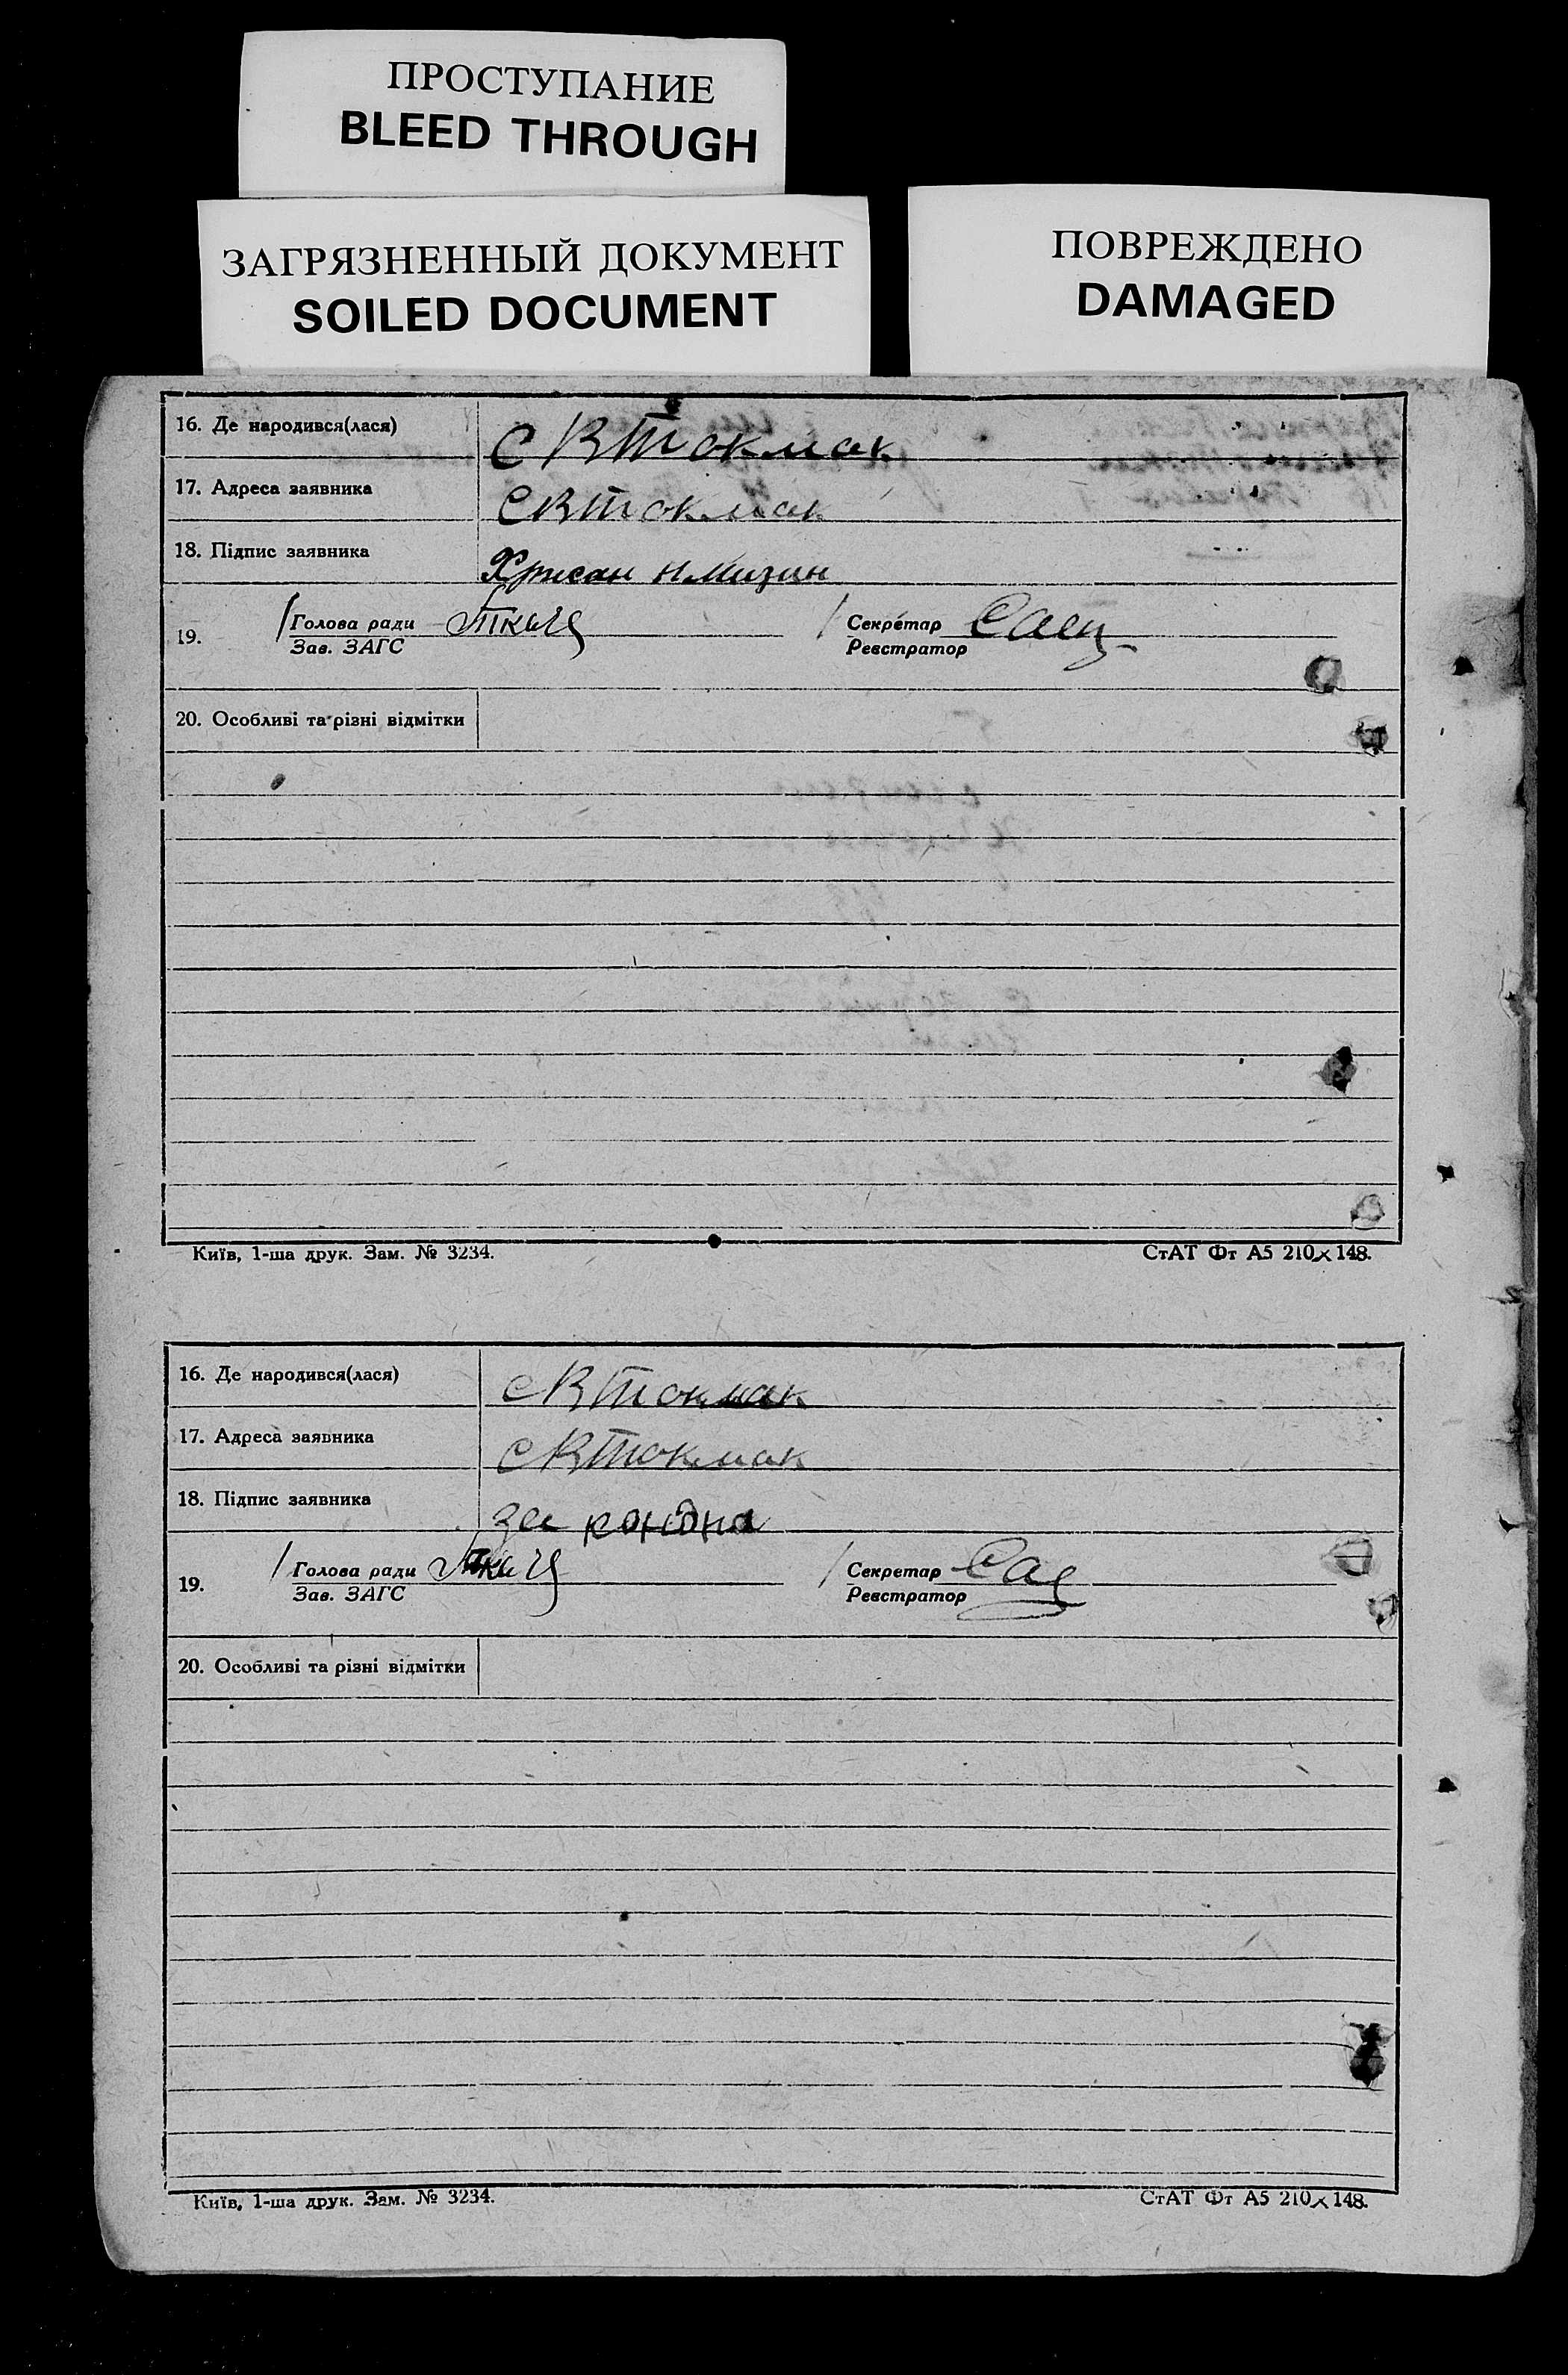 ПРОСТУПАНИЕ
BLEED THROUGH
ЗАГРЯЗНЕННЫЙ ДОКУМЕНТ
SOILED DOCUMENT
ПОВРЕЖДЕНО
DAMAGED
16. Де народився(лася) С В Токмак
17. Адреса заявника С В Токмак
18. Підпис заявника Хрисан
19. Голова ради Ткач Секретар Саец
Зав. ЗАГС Реєстратор
20. Особливі та різні відмітки
Київ, 1-ша друк. Зам. № 3234. СтАТ Фт А5 210×148.
16. Де народився(лася) С В Токмак
17. Адреса заявника С В Токмак
18. Підпис заявника за
19. Голова ради Ткач Секретар Сае
Зав. ЗАГС Реєстратор
20. Особливі та різні відмітки
Київ, 1-ша друк. Зам. № 3234. СтАТ Фт А5 210×148.